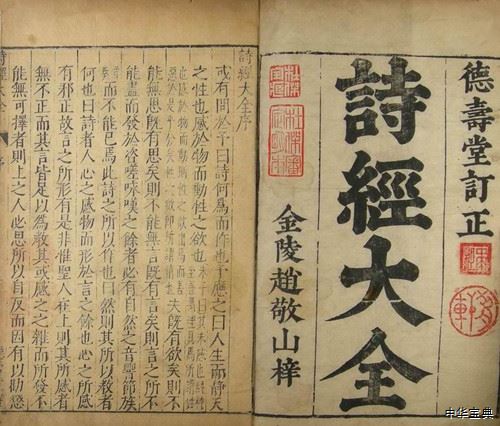 德壽堂訂正
詩經大全
金陵趙敬山梓
詩經大全序
或有問於予曰詩何爲而作也予應之曰人生而靜天
之性也感於物而動性之欲也夫既有欲矣則不
能無思既有思矣則不能無言既有言矣則言之所不
能盡而發於咨嗟咏嘆之餘者必有自然之音響節族
而不能已焉此詩之所以作也曰然則其所以教者
何也曰詩者人心之感物而形於言之餘也心之所感
有邪正故言之所形有是非惟聖人在上則其所感者
無不正而其言皆足以爲教其或感之之雜而所發不
能無可擇者則上之人必思所以自反而因有以勸懲
中华宝典